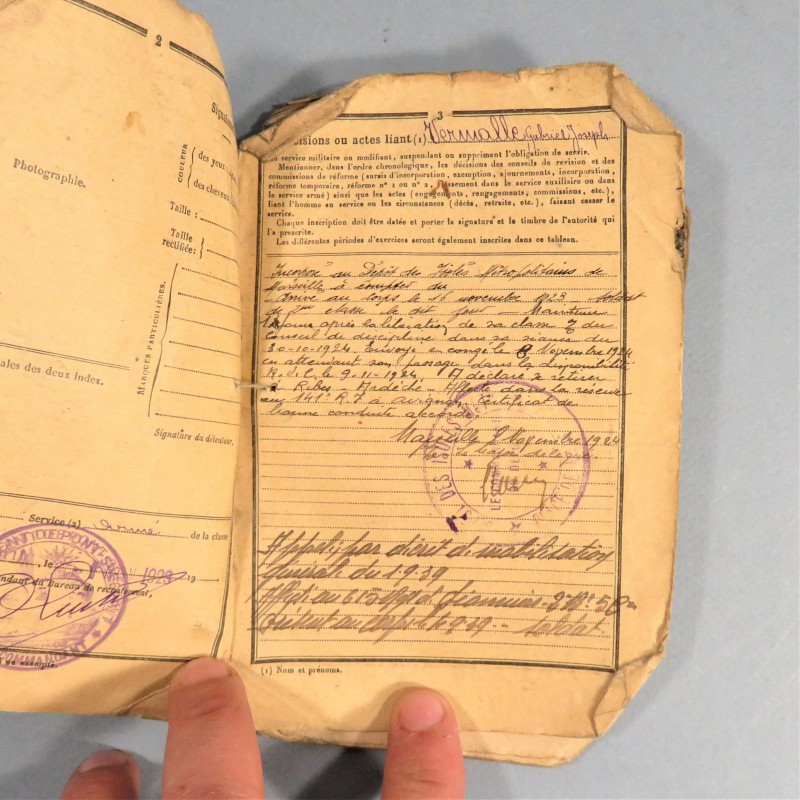 2
Photographie.
Signa
COULEUR
des yeux
des cheveux
Taille :
Taille
rectifiée:
MARQUES PARTICULIÈRES.
ales des deux index.
Signature du détenteur.
Service (2) armé de la classe
, le 1923 19
ndant du Bureau de recrutement,
3
isions ou actes liant (1) Vermalle Gabriel Joseph
au service militaire ou modifiant, suspendant ou supprimant l'obligation de servir.
Mentionner, dans l'ordre chronologique, les décisions des conseils de revision et des
commissions de réforme (sursis d'incorporation, exemption, ajournements, incorporation,
réforme temporaire, réforme n° 1 ou n° 2, classement dans le service auxiliaire ou dans
le service armé) ainsi que les actes (engagements, rengagements, commissions, etc.),
liant l'homme au service ou les circonstances (décès, retraite, etc.), faisant cesser le
service.
Chaque inscription doit être datée et porter la signature et le timbre de l'autorité qui
l'a prescrite.
Les différentes périodes d'exercices seront également inscrites dans ce tableau.
Incorporé au Dépôt des Isolés Métropolitains de
Marseille à compter du
Arrivé au corps le 16 novembre 1923 Soldat
de 2me classe le dit jour - Maintenu
jours après la libération de sa classe du
Conseil de discipline dans sa séance du
30-10-1924. Envoyé en congé le 8 Novembre 1924
en attendant son passage dans la disponibilité
le 9-11-1924. A déclaré se retirer
à Ribes - Ardèche - Affecté dans la réserve
au 141e R.I à Avignon. Certificat de
bonne conduite accordé.
Marseille 8 Novembre 1924
Le Major délégué.
DES ISOLÉS
Appelé par décret de mobilisation
générale du 1.9.39
Affecté au Pionniers
au corps le 9-39 - soldat.
(1) Nom et prénoms.